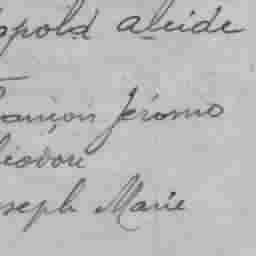 opold alcide
ançois Jérome
éodore
seph Marie